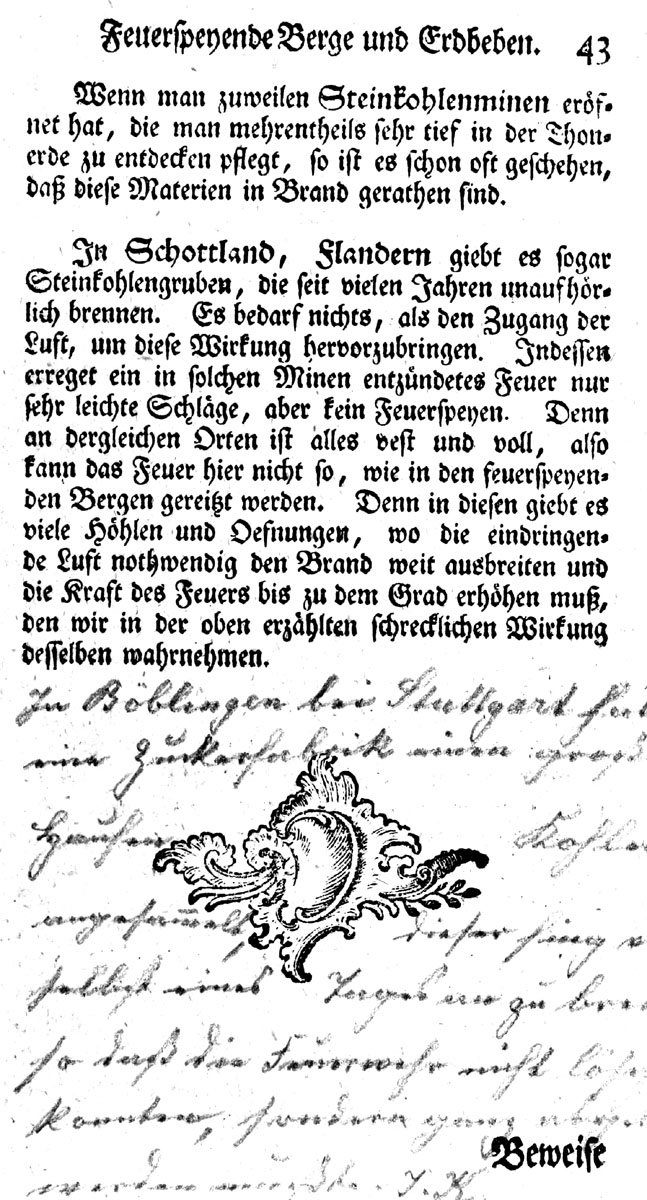 Feuerspeyende Berge und Erdbeben. 43
Wenn man zuweilen Steinkohlenminen eröf-
net hat, die man mehrentheils sehr tief in der Thon-
erde zu entdecken pflegt, so ist es schon oft geschehen,
daß diese Materien in Brand gerathen sind.
In Schottland, Flandern giebt es sogar
Steinkohlengruben, die seit vielen Jahren unaufhör-
lich brennen. Es bedarf nichts, als den Zugang der
Luft, um diese Wirkung hervorzubringen. Indessen
erreget ein in solchen Minen entzündetes Feuer nur
sehr leichte Schläge, aber kein Feuerspeyen. Denn
an dergleichen Orten ist alles vest und voll, also
kann das Feuer hier nicht so, wie in den feuerspeyen-
den Bergen gereitzt werden. Denn in diesen giebt es
viele Höhlen und Oefnungen, wo die eindringen-
de Luft nothwendig den Brand weit ausbreiten und
die Kraft des Feuers bis zu dem Grad erhöhen muß,
den wir in der oben erzählten schrecklichen Wirkung
desselben wahrnehmen.
In Böblingen bei Stuttgart hat
eine Zuckerfabrik einen groß
Haufen Kohle
angesammelt, dieser fing v
selbst eines Tages an zu bre
so daß die Feuerwehr nicht lösch
konnten, sondern ganz
werden mußte. J. K.
Beweise